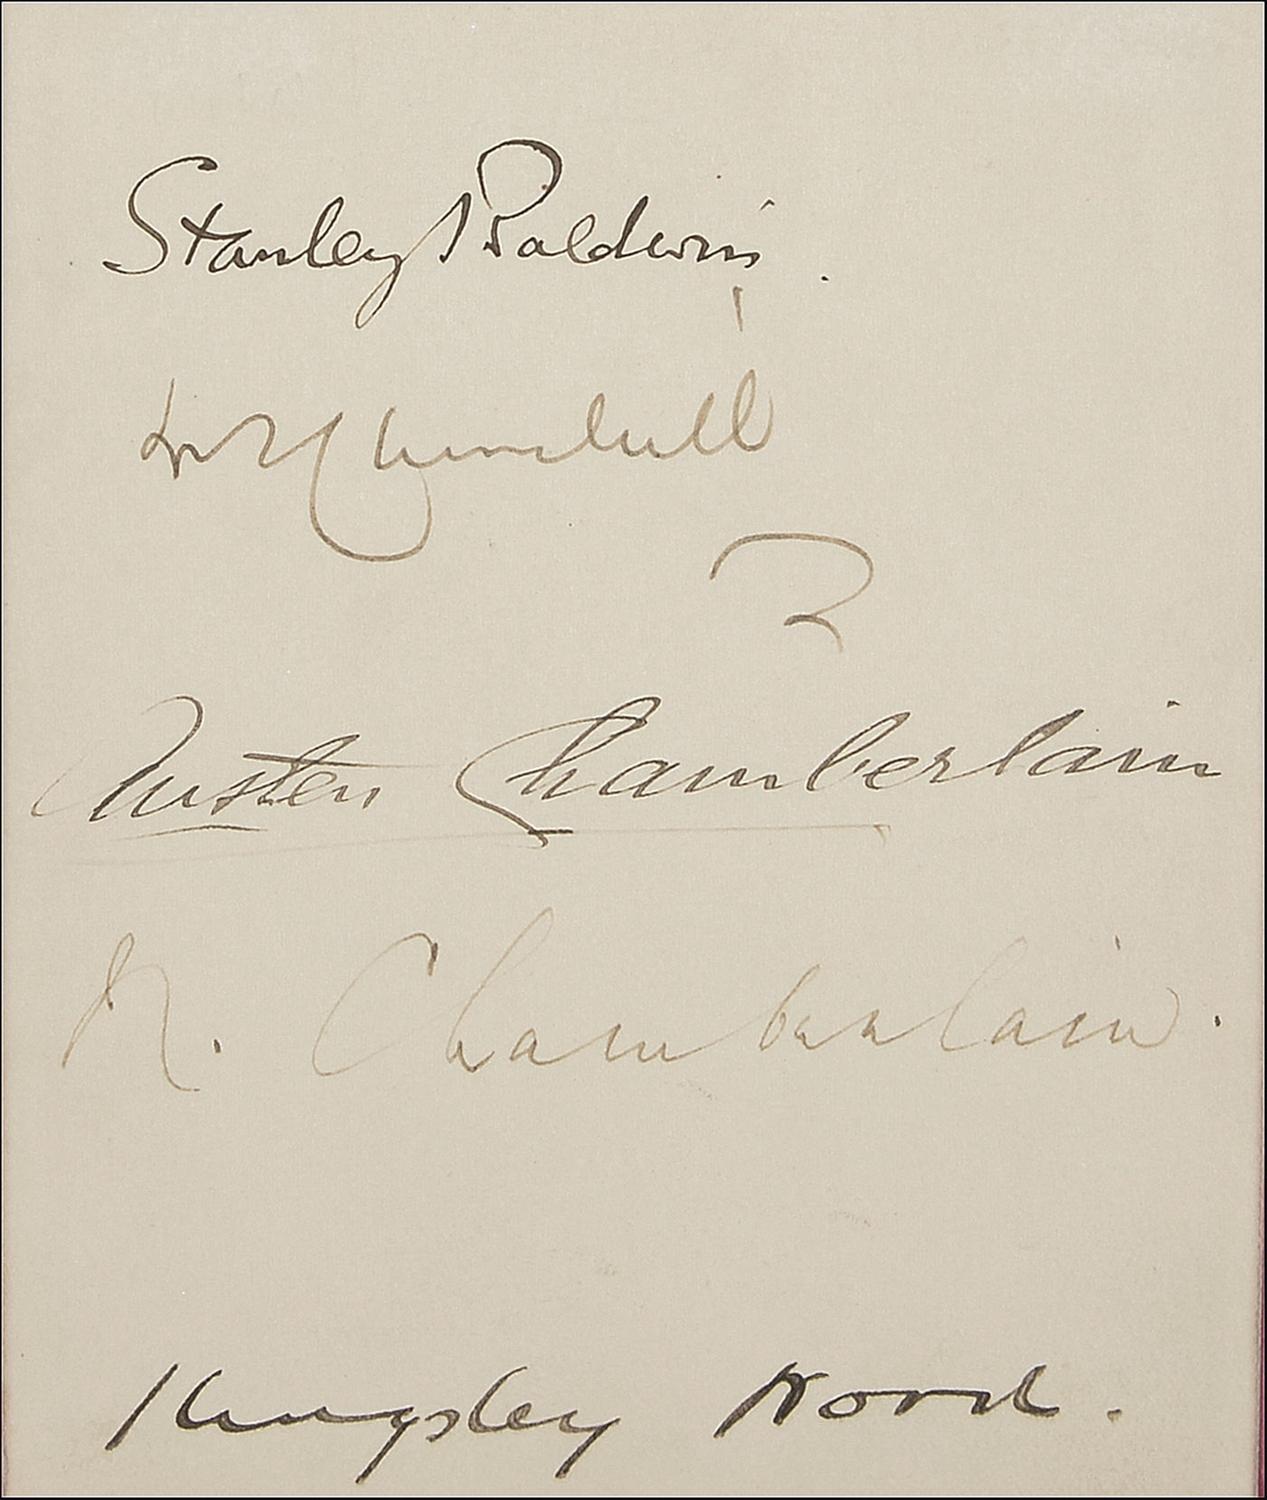 Stanley Baldwin.
W S Churchill
Austen Chamberlain
N. Chamberlain.
Kingsley Wood.